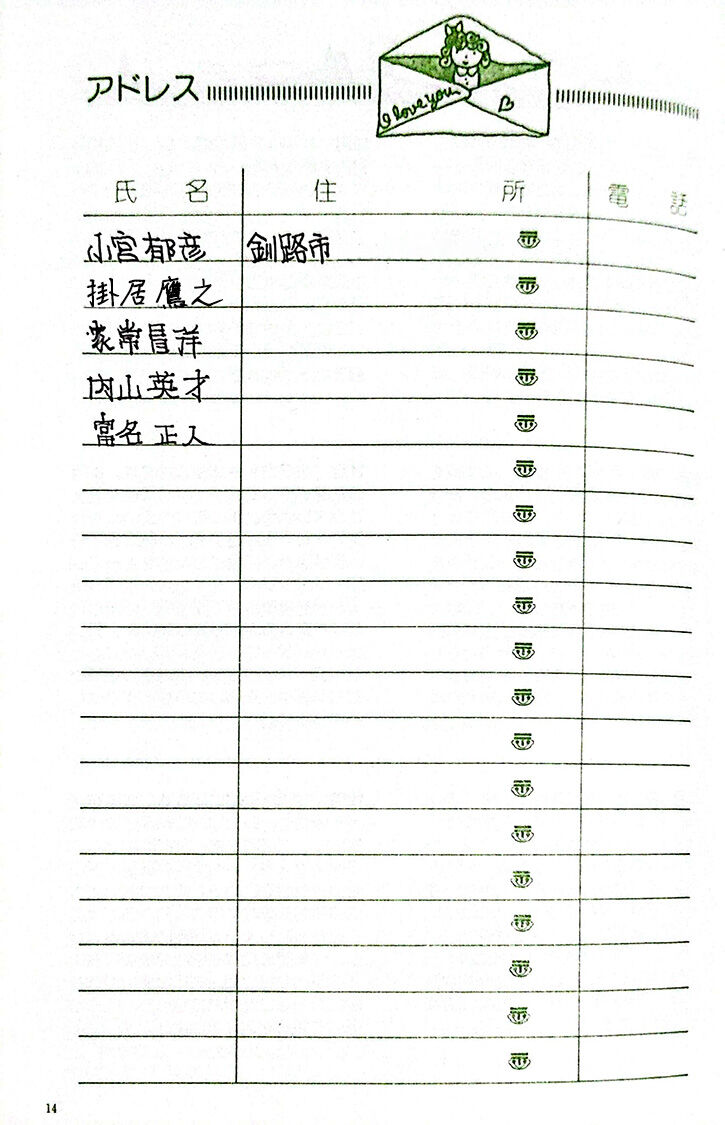 アドレス
I love you
氏名 住所 電話
小宮郁彦 釧路市 〒
掛居鷹之 〒
家常昌洋 〒
内山英才 〒
富名正人 〒
〒
〒
〒
〒
〒
〒
〒
〒
〒
〒
〒
〒
〒
〒
14